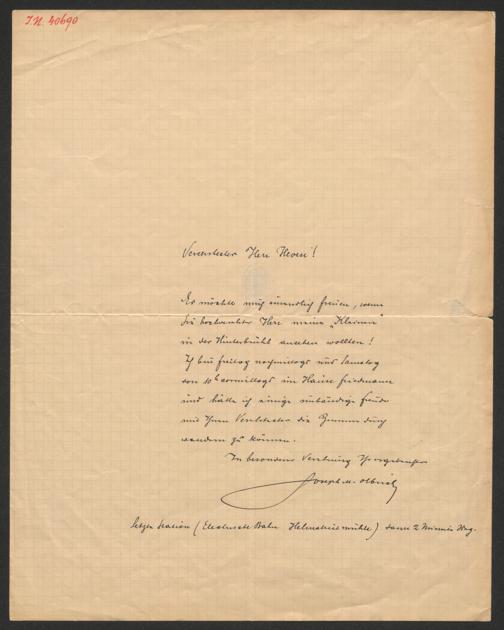 I.N. 40690
Verehrtester Herr Hevesi!
Es möchte mich unendlich freuen, wenn
Sie hochverehrter Herr meine „Kleinen"
in der Hinterbrühl ansehen wollten!
Ich bin freitag nachmittags und Samstag
von 10h vormittags im Hause Friedmann
und hätte ich einige unbändige freude
mit Ihnen Verehrtester die Zimmer durch
wandern zu können.
In besonderer Verehrung Ihr ergebenster
Joseph M. Olbrich
letzte Station (Electrische Bahn Helmstreitmühle) dann 2 Minuten Weg.